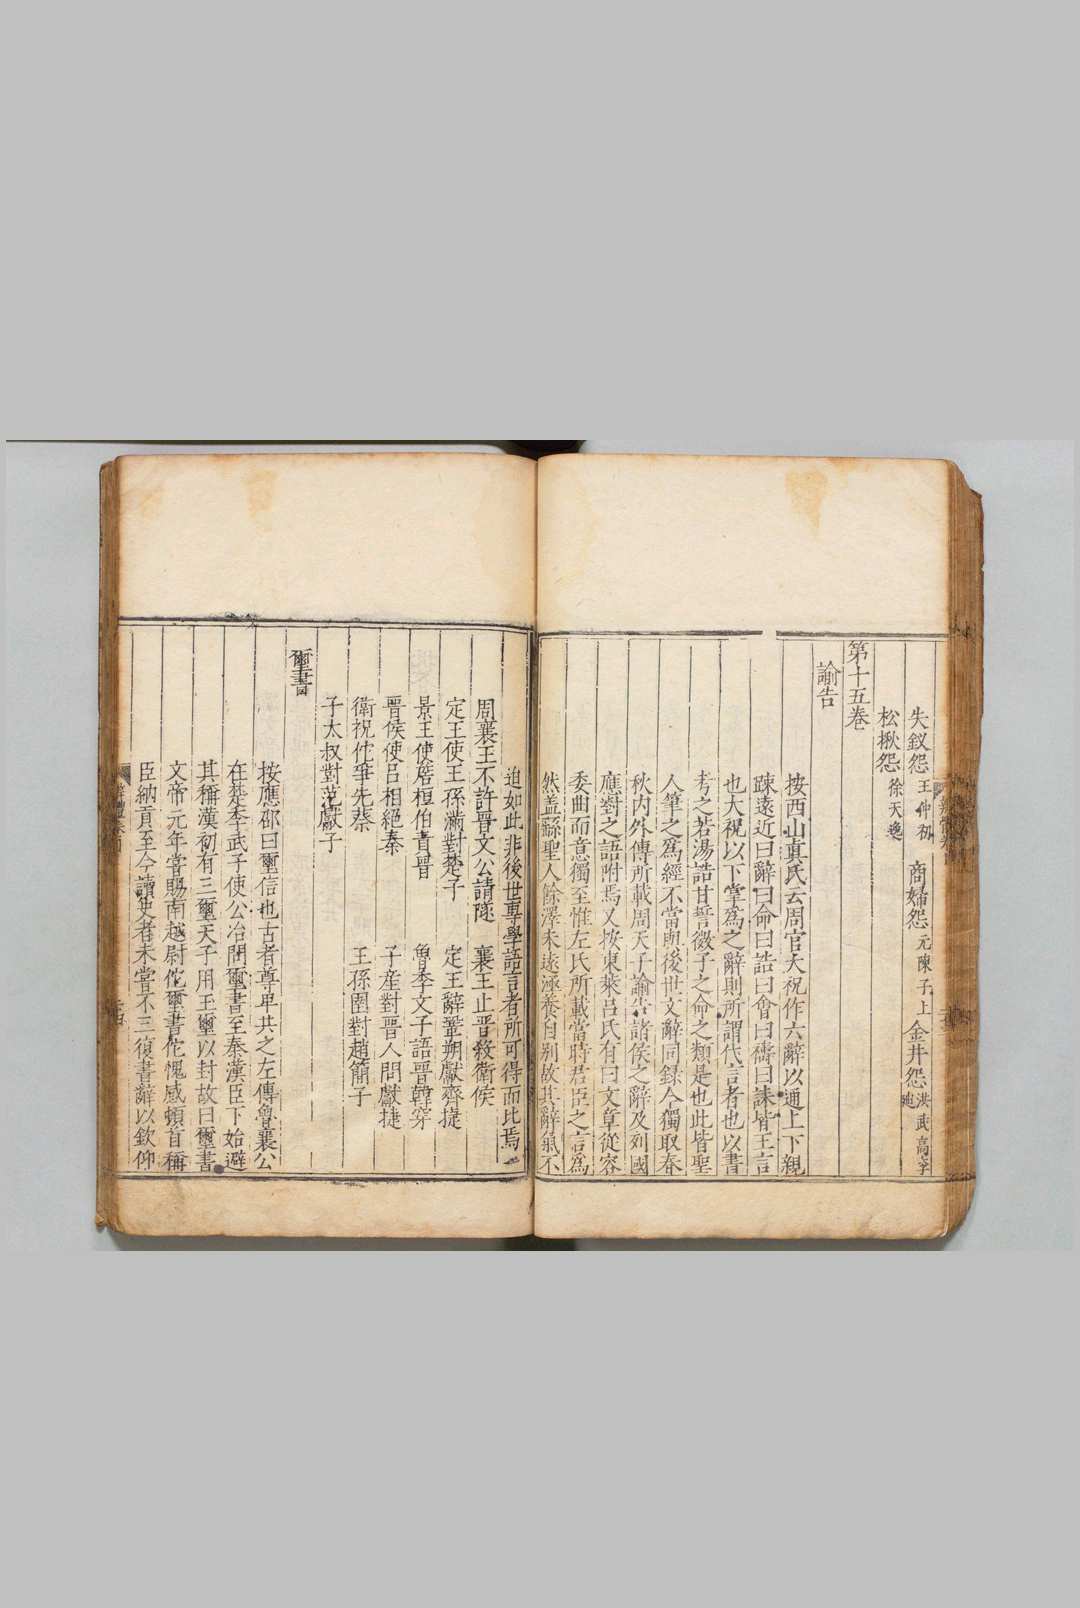 失釵怨 王仲初 商婦怨 元陳子上 金井怨 洪武高季迪
松楸怨 徐天逸
第十五卷
諭告
按西山真氏云周官大祝作六辭以通上下親
踈遠近曰辭曰命曰誥曰會曰禱曰誄皆王言
也大祝以下掌為之辭則所謂代言者也以書
考之若湯誥甘誓微子之命之類是也此皆聖
人筆之為經不當與後世文辭同錄今獨取春
秋内外傳所載周天子諭告諸侯之辭及列國
應對之語附焉又按東萊呂氏有曰文章從容
委曲而意獨至惟左氏所載當時君臣之言為
然盖繇聖人餘澤未逺涵養自别故其辭氣不
迫如此非後世專學語言者所可得而比焉
周襄王不許晉文公請隧 襄王止晉殺衛侯
定王使王孫滿對楚子 定王辭鞏朔獻齊捷
景王使詹桓伯責晉 魯季文子語晉韓穿
晉侯使呂相絕秦 子産對晉人問獻捷
衛祝佗爭先蔡 王孫圉對趙簡子
子太叔對范獻子
璽書
按應邵曰璽信也古者尊卑共之左傳魯襄公
在楚季武子使公冶問璽書至秦漢臣下始避
其稱漢初有三璽天子用玉璽以封故曰璽書
文帝元年嘗賜南越尉佗璽書佗愧感頓首稱
臣納貢至今讀史者未嘗不三復書辭以欽仰